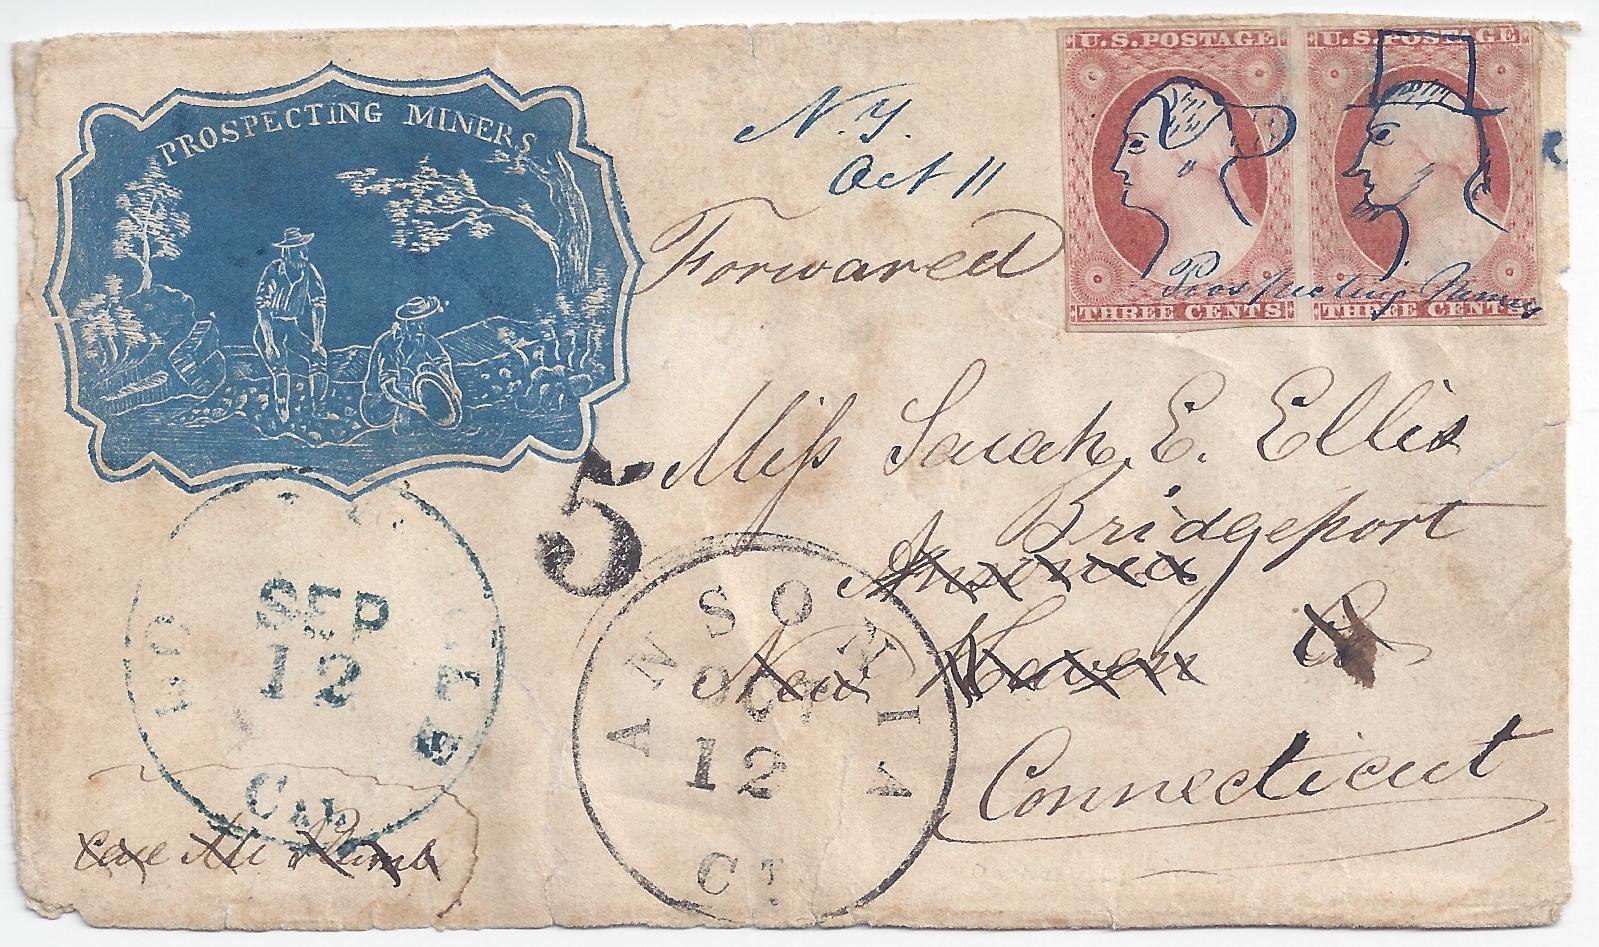 PROSPECTING MINERS
U.S.POSTAGE
U.S.POSTAGE
THREE CENTS
THREE CENTS
Prospecting Miners
N.Y.
Oct 11
Forwared
Miss Sarah E. Ellis
Bridgeport
Ansonia
New Haven Ct
Connecticut
5
SEP
12
CAL
ANSONIA
OCT
12
CT
Care